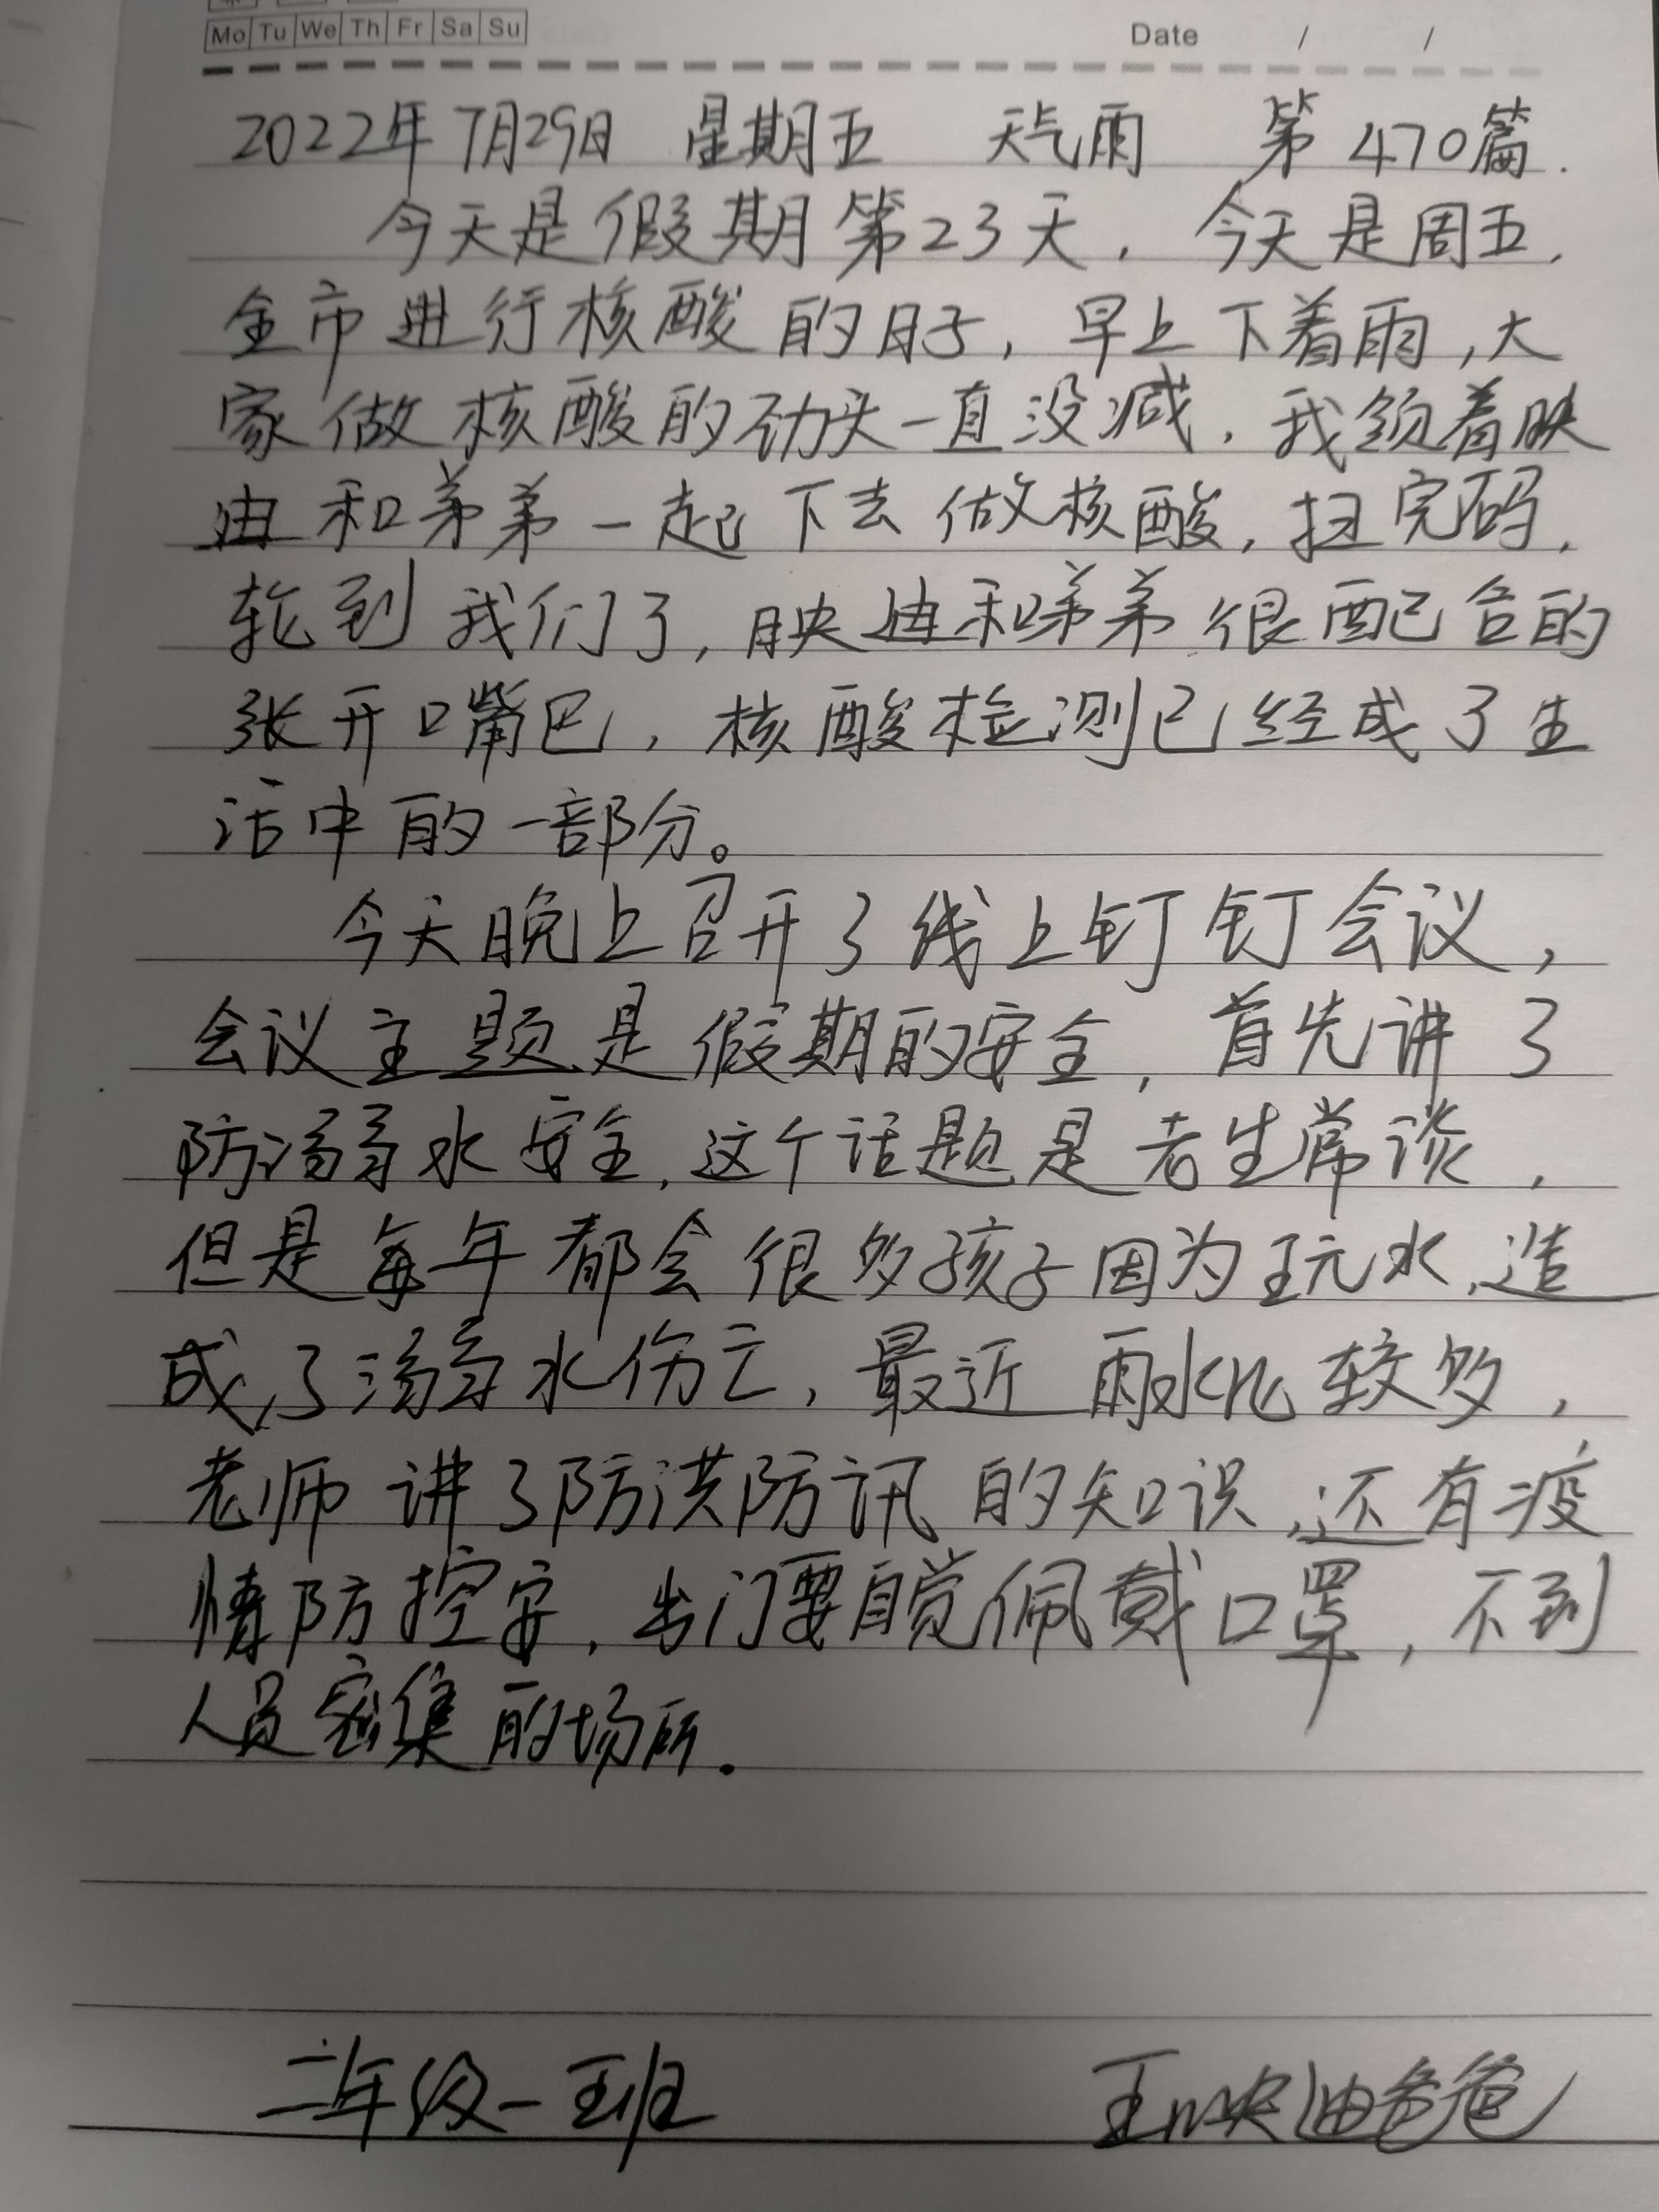 Mo Tu We Th Fr Sa Su Date / /
2022年7月29日 星期五 天气雨 第470篇.
今天是假期第23天,今天是周五,
全市进行核酸的日子,早上下着雨,大
家做核酸的劲头一直没减,我领着映
迪和弟弟一起下去做核酸,扫完码,
轮到我们了,映迪和弟弟很配合的
张开口嘴巴,核酸检测已经成了生
活中的一部分。
今天晚上召开了线上钉钉会议,
会议主题是假期的安全,首先讲了
防溺水安全,这个话题是老生常谈,
但是每年都会很多孩子因为玩水,造
成了溺水伤亡,最近雨水比较多,
老师讲了防洪防讯的知识,还有疫
情防控安,出门要自觉佩戴口罩,不到
人员密集的场所.
二年级一班 王映迪爸爸